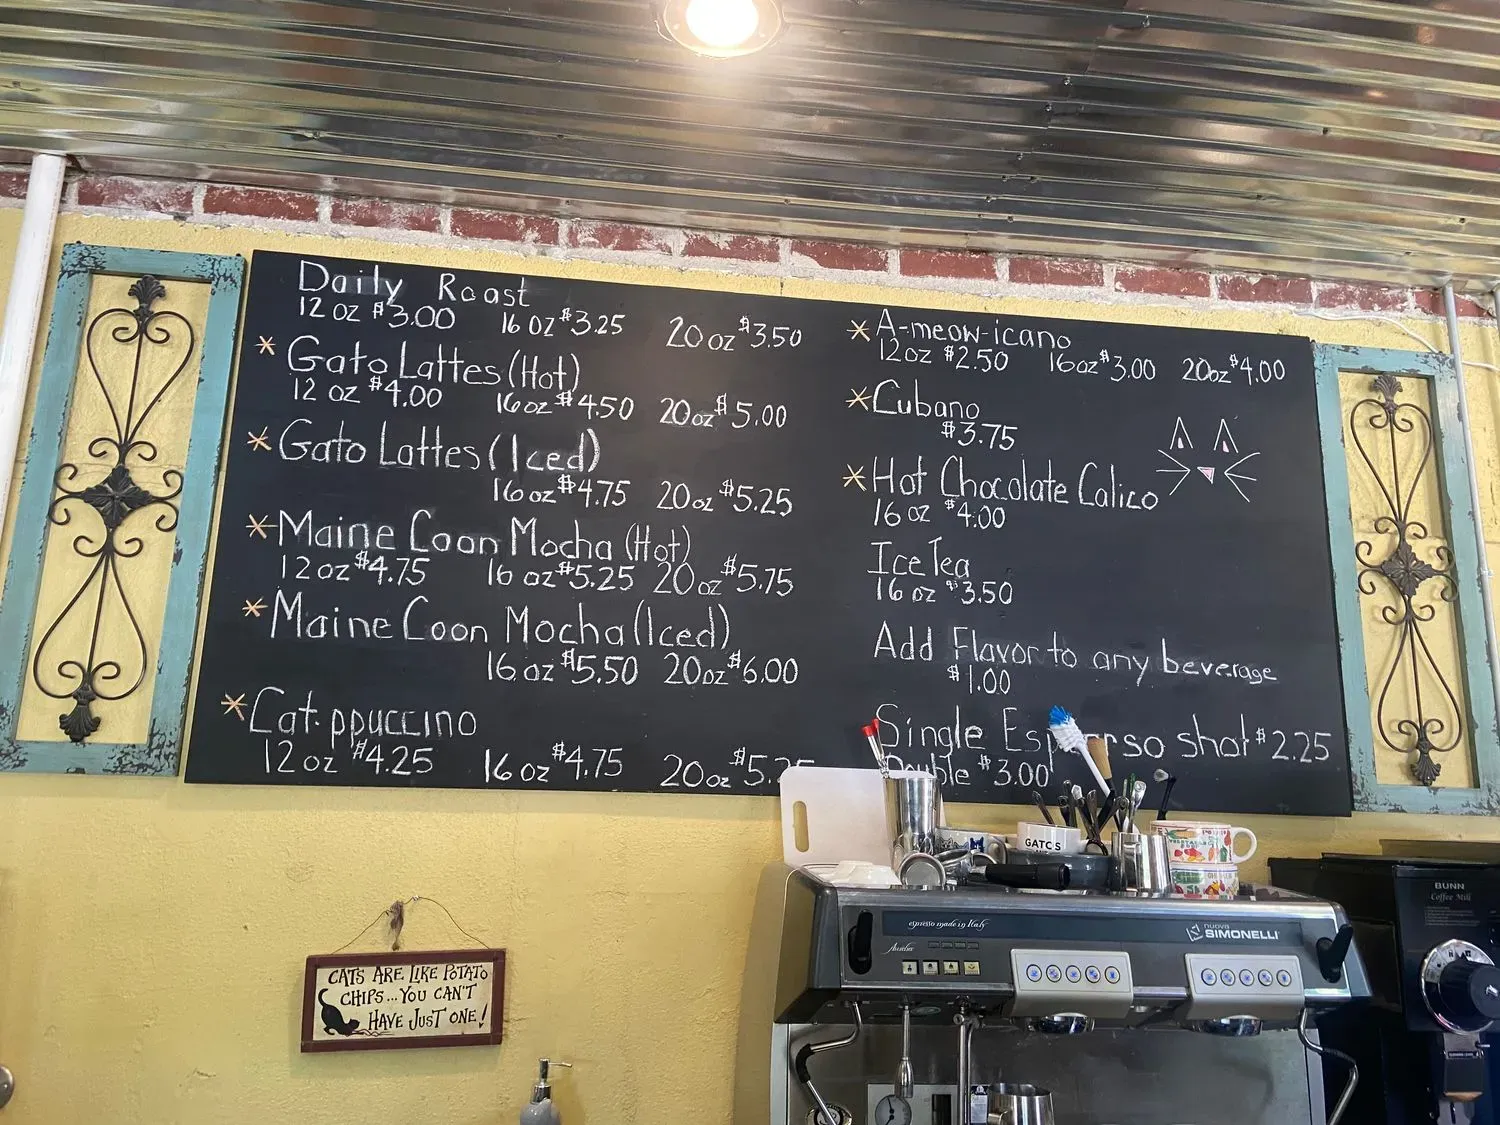 Daily Roast
12 oz $3.00 16 oz $3.25 20 oz $3.50
* Gato Lattes (Hot)
12 oz $4.00 16 oz $4.50 20 oz $5.00
* Gato Lattes (Iced)
16 oz $4.75 20 oz $5.25
* Maine Coon Mocha (Hot)
12 oz $4.75 16 oz $5.25 20 oz $5.75
* Maine Coon Mocha (Iced)
16 oz $5.50 20 oz $6.00
* Cat.ppuccino
12 oz $4.25 16 oz $4.75 20 oz $5.25
* A-meow-icano
12 oz $2.50 16 oz $3.00 20 oz $4.00
* Cubano
$3.75
* Hot Chocolate Calico
16 oz $4.00
Ice Tea
16 oz $3.50
Add Flavor to any beverage
$1.00
Single Espresso shot $2.25
Double $3.00
GATOS
espresso made in Italy
nuova
SIMONELLI
BUNN
Coffee Mill
CATS ARE LIKE POTATO
CHIPS...YOU CAN'T
HAVE JUST ONE!